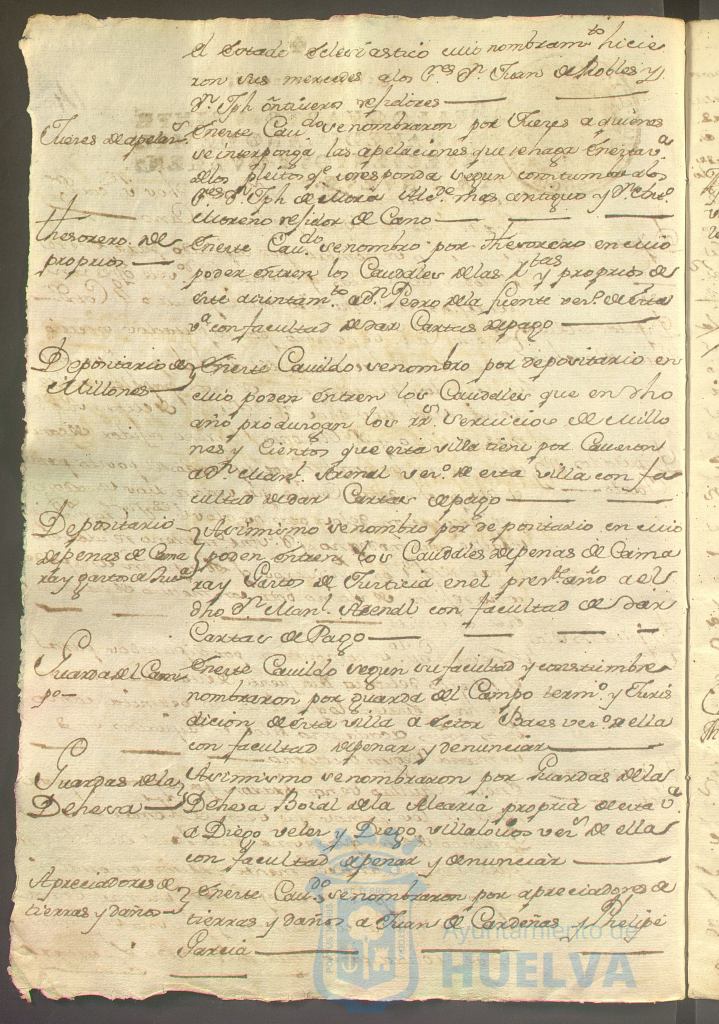 el estado eclesiastico cuio nombramto hicie
ron sus mercedes a los Sres Dn Juan de Robles y
Dn Jph regidores
Jueces de apelas
En este Caudo se nombraron por Jueces a quienes
se interponga las apelaciones que se haga en esta va
de los pleitos qe corresponda segun costumbre a los
Sres Dn Jph de Mora Alcde mas antiguo y Dn
Moreno regidor de Cano
thesorero de
proprios
En este Caudo se nombro por thesorero en cuio
poder entren los Caudales de las Rtas y proprios de
este aiuntamto a Dn Pedro de la fuente veco de esta
va con facultad de dar Cartas de pago
Depositario de
Millones
En este Cavildo se nombro por depositario en
cuio poder entren los Caudales que en dho
año produzgan los rrs servicios de Millo
nes y Cientos que esta villa tiene por
a Dn Manl Arenal veco de esta villa con fa
cultad de dar Cartas de pago
Depositario
de penas de Cama
ra y gastos de Justa
Asimismo se nombro por depositario en cuio
poder entren los Caudales de penas de Cama
ra y Gastos de Justicia en el preste año a el
dho Dn Manl Arenal con facultad de dar
Cartas de Pago
Guarda del Cam
po
En este Cavildo segun su facultad y constumbre
nombraron por guarda del Campo termo y Juris
dicion de esta villa a Baes veco de ella
con facultad de penar y denunciar
Guardas de la
Dehesa
Asimismo se nombraron por Guardas de la
Dehesa Boial de la Alcaria propria de esta va
a Diego veles y Diego villalovos vecos de ella
con facultad de penar y denunciar
Apreciadores de
tierras y daños
En este Caudo se nombraron por apreciadores de
tierras y daños a Juan de Cardeñas y Phelipe
Garcia
Ayuntamiento de
HUELVA